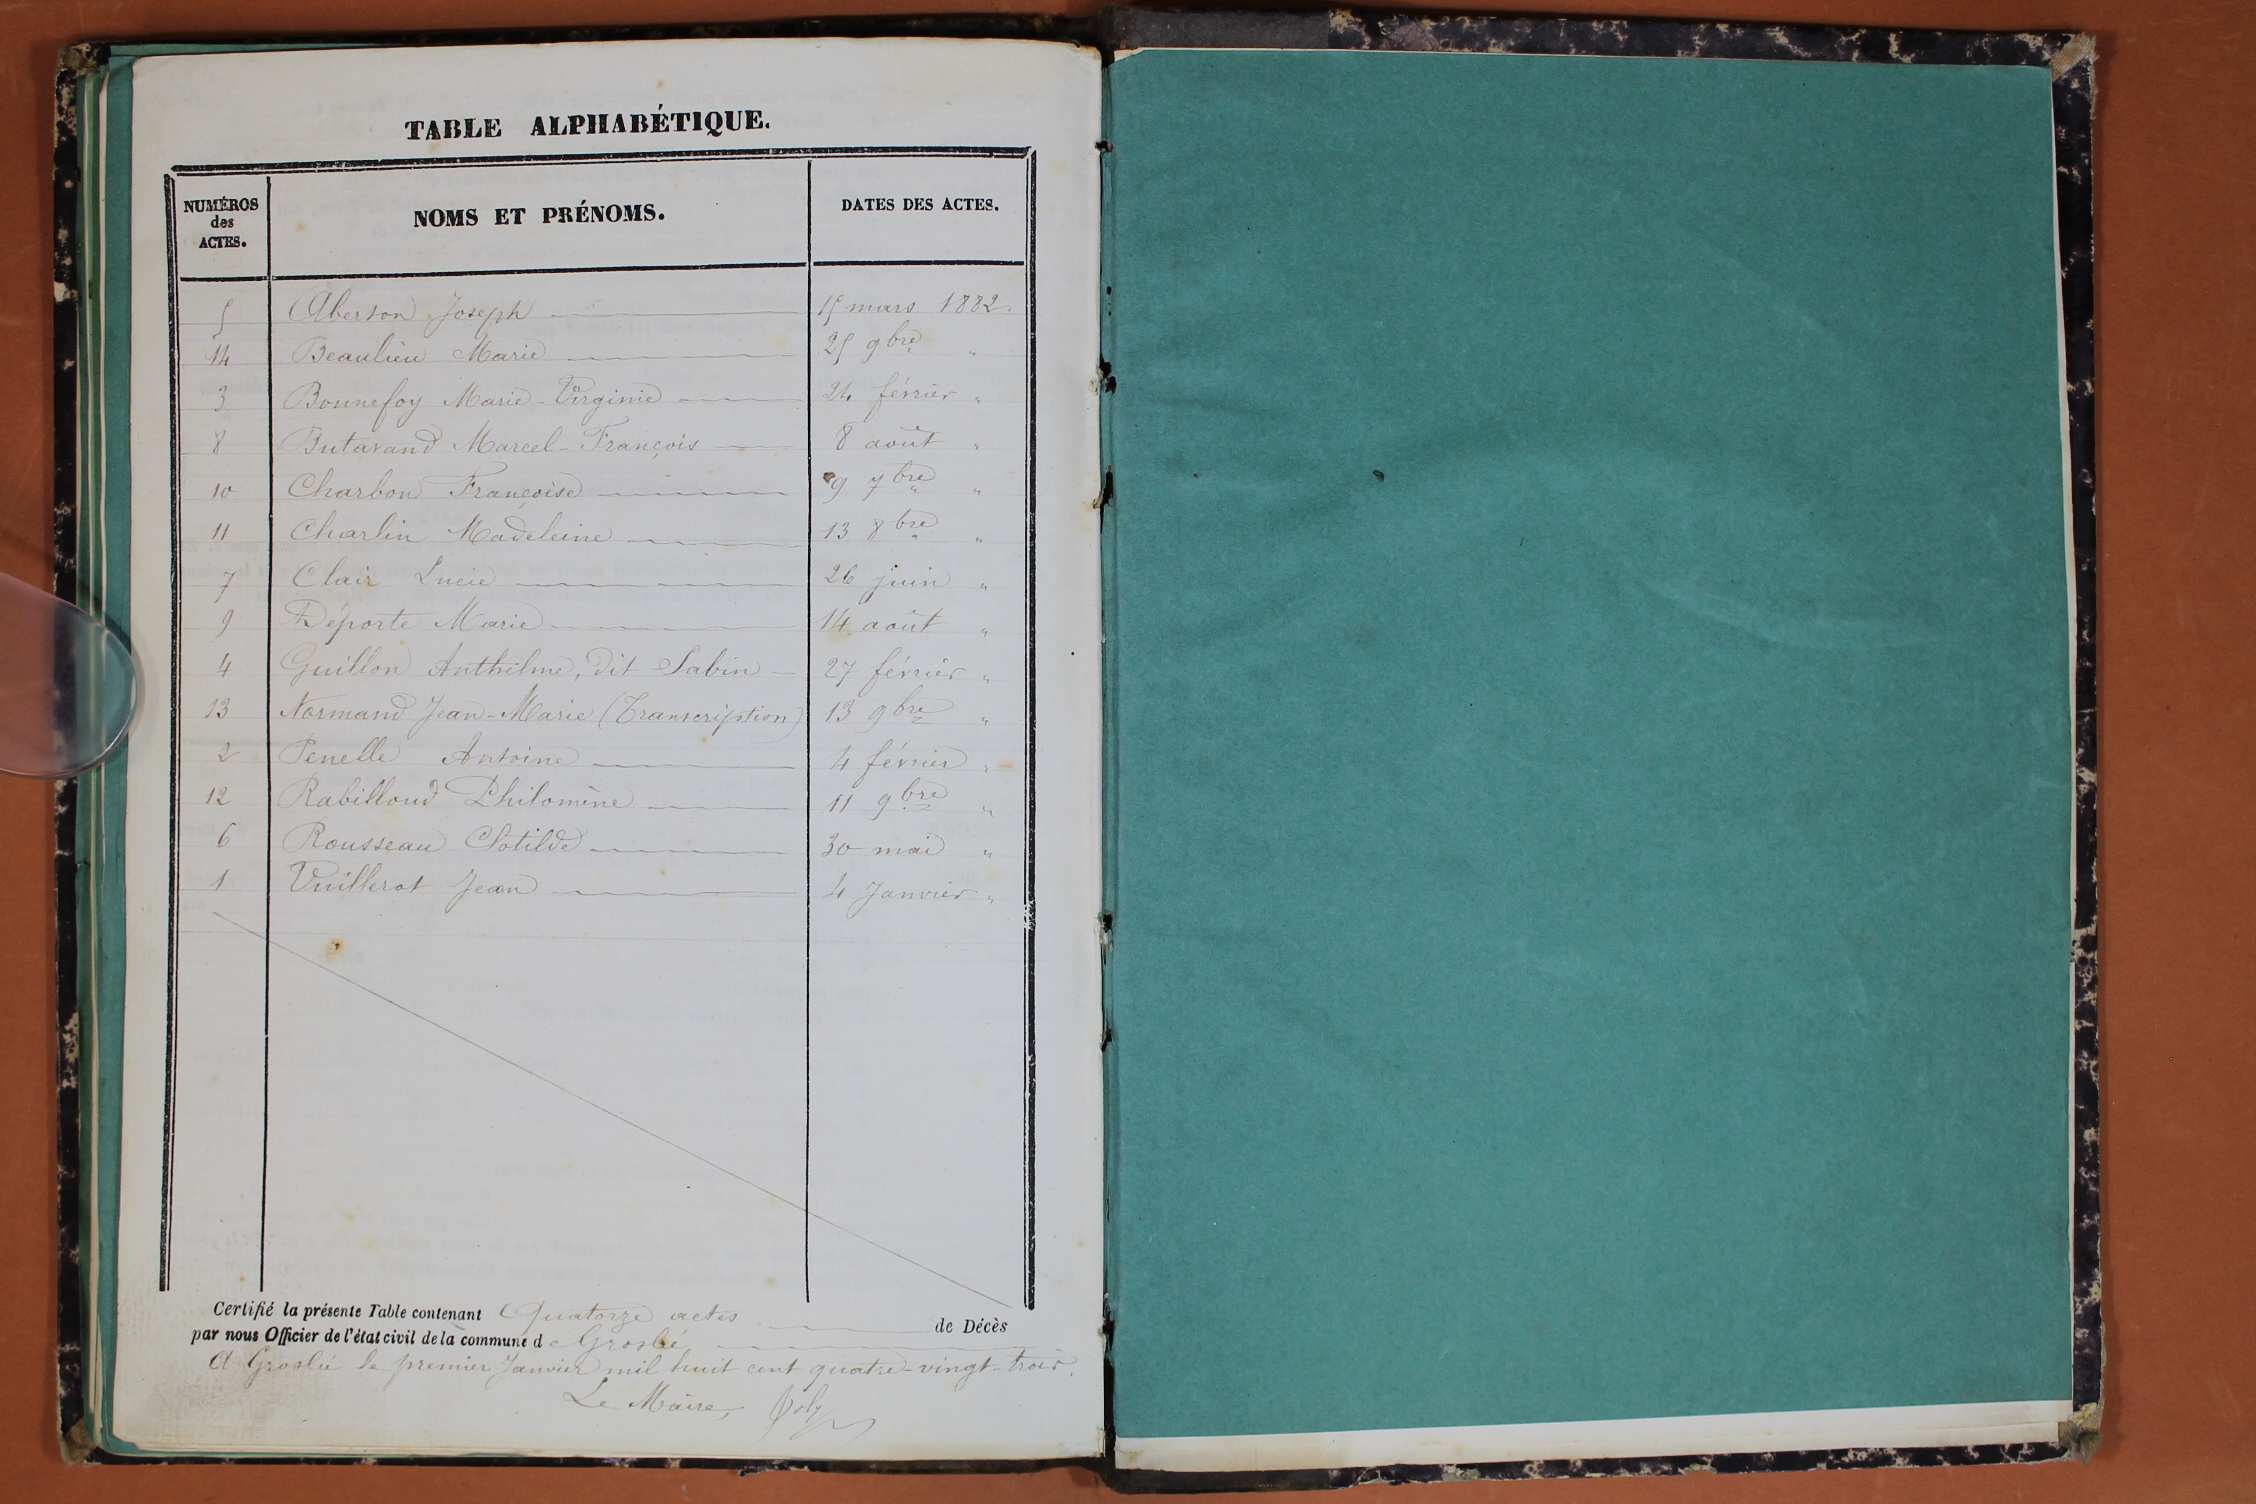 TABLE ALPHABÉTIQUE.
NUMÉROS des ACTES. NOMS ET PRÉNOMS. DATES DES ACTES.
5 Aberton Joseph 15 mars 1882.
14 Beaulieu Marie 25 9bre "
3 Bonnefoy Marie-Virginie 24 février "
8 Butavand Marcel-François 8 août "
10 Charbon Françoise 9 7bre "
11 Charlin Madeleine 13 8bre "
7 Clair Lucie 26 juin "
9 Déporte Marie 14 août "
4 Guillon Anthilme, dit Sabin 27 février "
13 Normand Jean-Marie (Transcription) 13 9bre "
2 Penelle Antoine 4 février "
12 Rabilloud Philomène 11 9bre "
6 Rousseau Clotilde 30 mai "
1 Vuillerot Jean 4 Janvier "
Certifié la présente Table contenant Quatorze actes de Décès
par nous Officier de l'état civil de la commune de Groslée
A Groslée le premier Janvier mil huit cent quatre-vingt-trois.
Le Maire, Joly